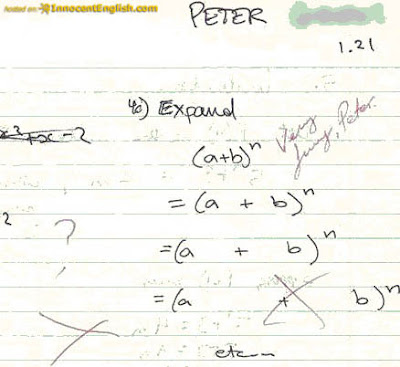 Hosted on InnocentEnglish.com
PETER
1.21
4c) Expand
(a+b)ⁿ
Very
funny, Peter.
= (a + b)ⁿ
2
?
= (a + b)ⁿ
= (a + b)ⁿ
etc...